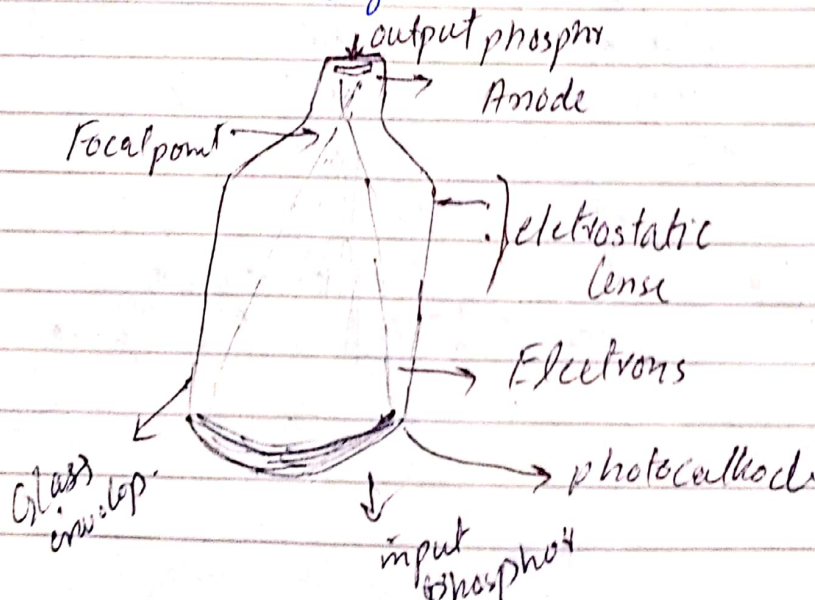 output phosphr
Anode
Focal point
eletrostatic
lense
Electrons
photocathod
Glass
envelop.
input
phosphor